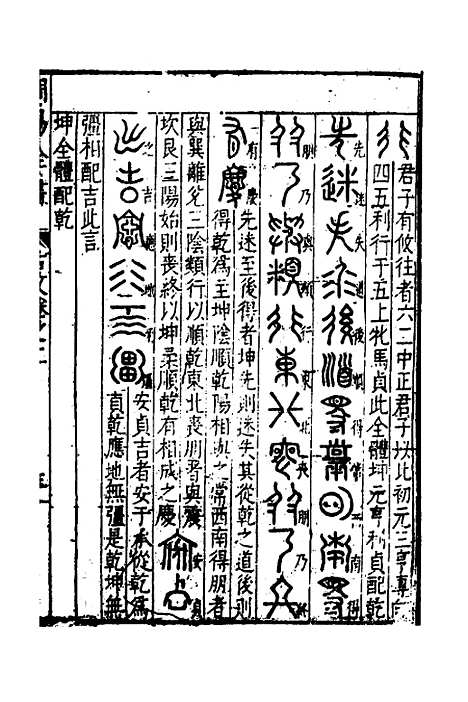 行
君子有攸往者六二中正君子以比初元三亨專
四五利行于五上牝馬貞此全體坤元亨利貞配乾
先迷失道後順得常西南得
朋乃與類行東北喪朋乃終
有慶
先迷至後得者坤先則迷失其從乾之道後則
得乾為主坤陰順乾陽相與之常西南得朋者
與巽離兌三陰類行以順乾東北喪朋者與震
坎艮三陽始則喪終以坤柔順乾有相成之慶
安貞
之吉應地無疆
安貞吉者安于承從乾為
貞乾應地無疆是乾坤無
疆相配吉此言
坤全體配乾
周易全書 古文卷之二